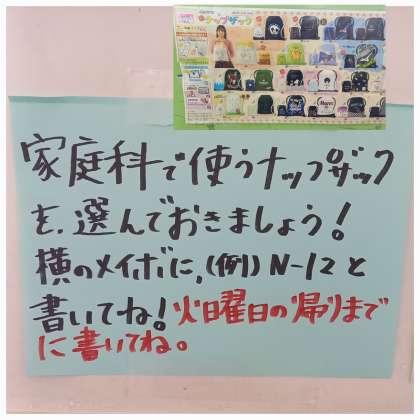 ナップザック
家庭科で使うナップザック
を、選んでおきましょう!
横のメイボに,(例) N-12と
書いてね!火曜日の帰りまで
に書いてね。